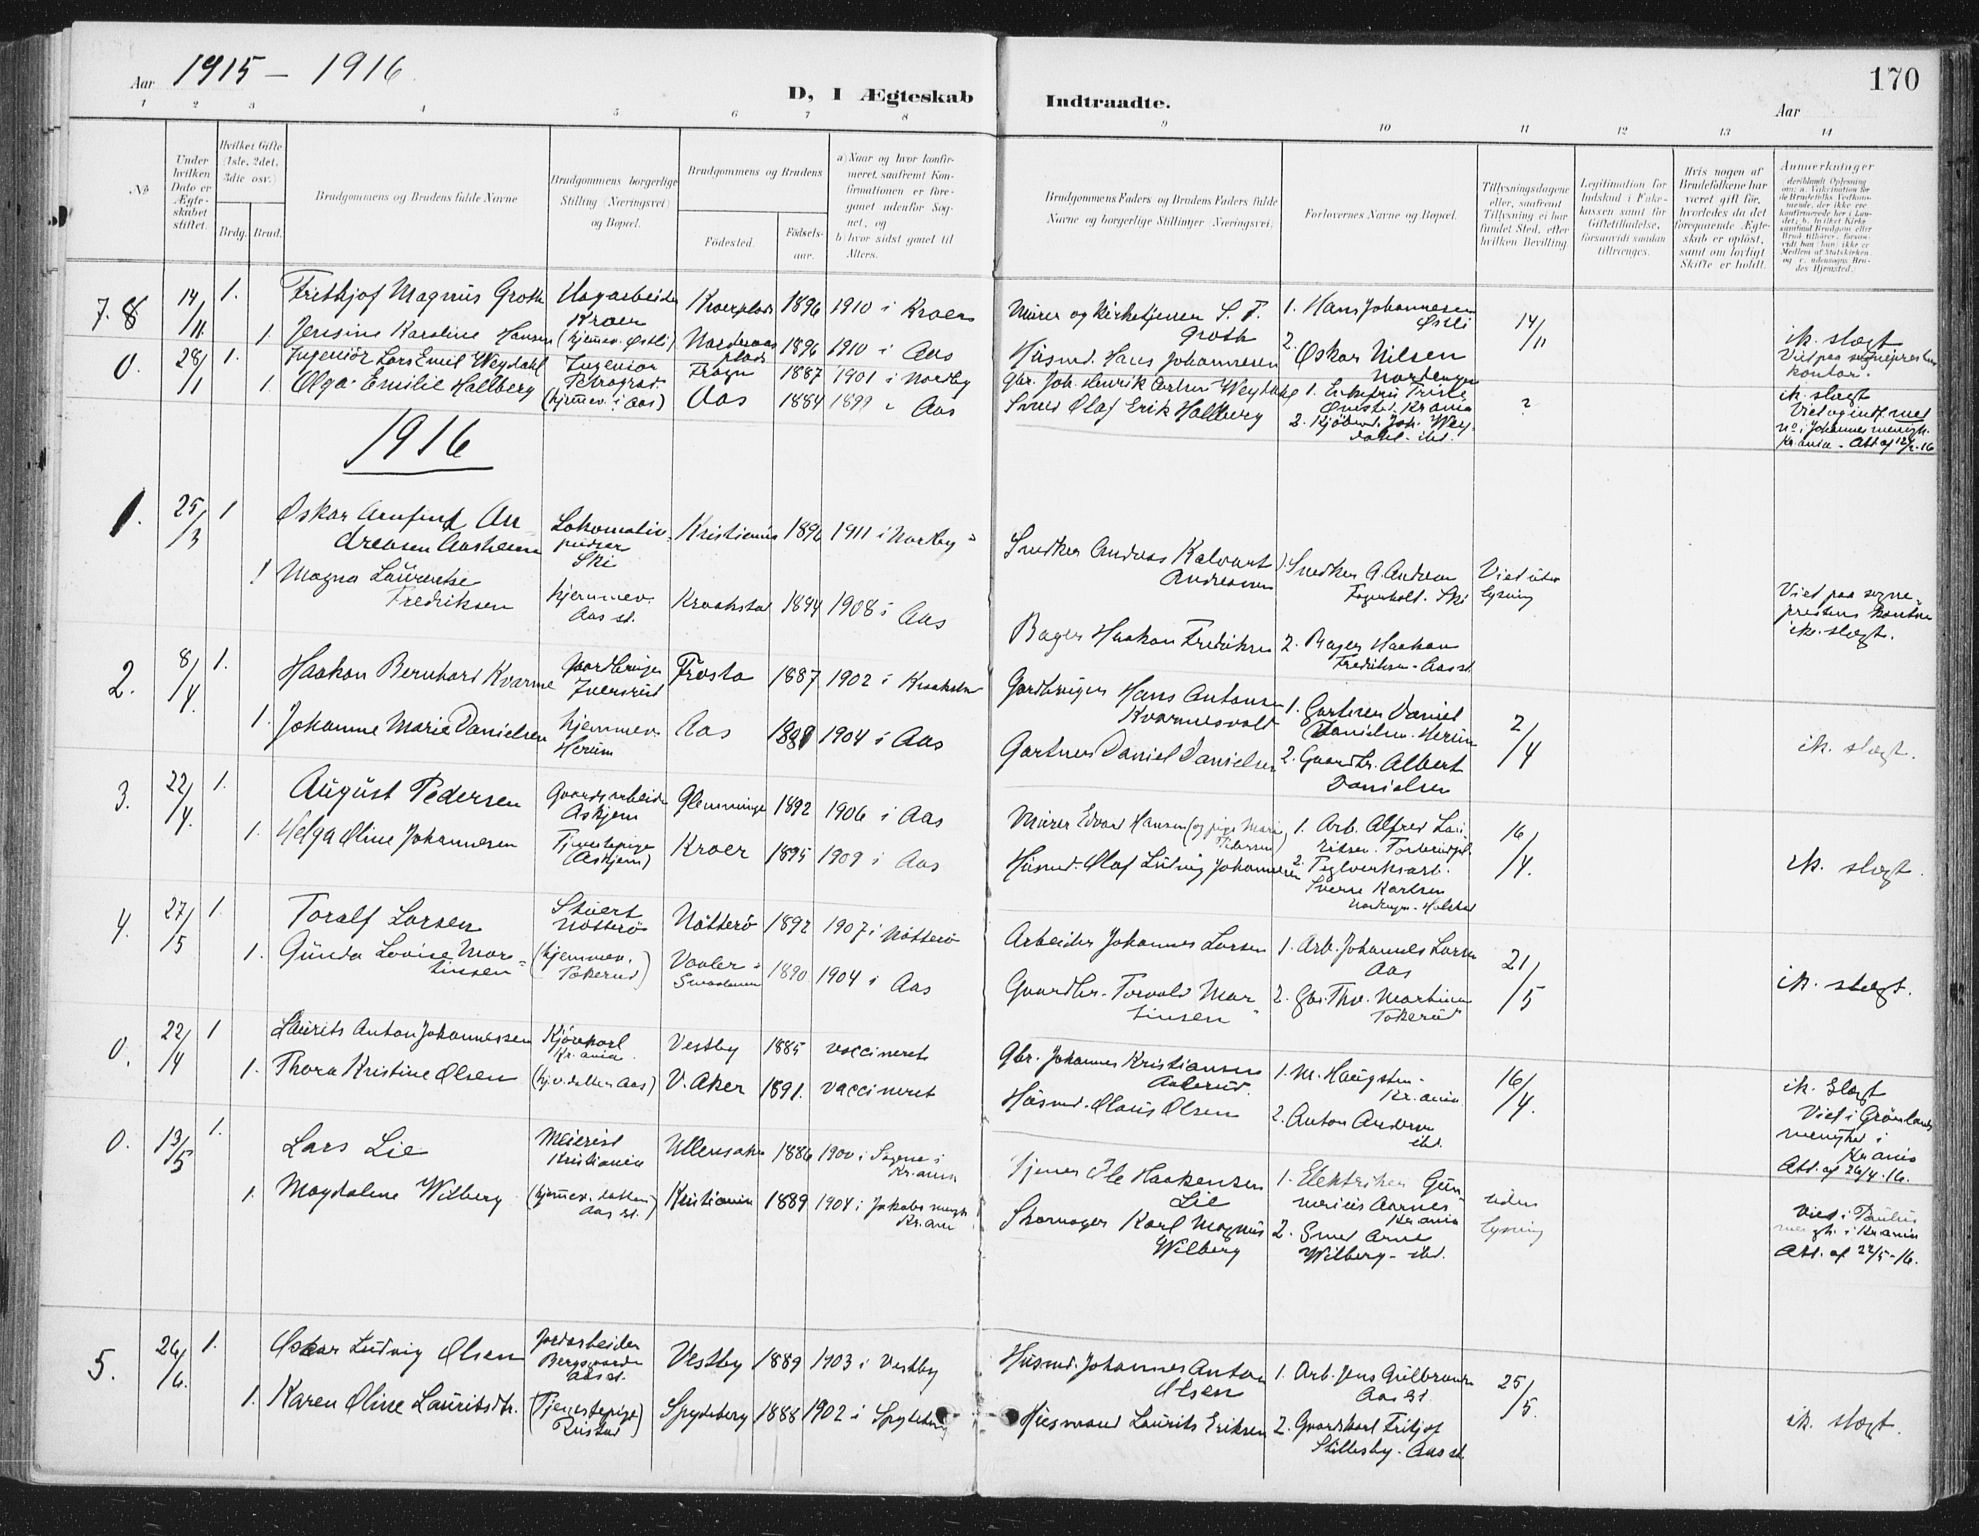 Aar 1915 – 1916
170
D, I Ægteskab Indtraadte.
Aar
1 2 3 4 5 6 7 8 9 10 11 12 13 14
No
Under hvilken Dato er Ægteskabet stiftet.
Hvilket Gifte (1ste, 2det, 3die osv.)
Brdg. Brud.
Brudgommens og Brudens fulde Navne
Brudgommens borgerlige Stilling (Næringsvei) og Bopæl.
Brudgommens og Brudens
Fødested.
Fødselsaar.
a) Naar og hvor konfirmeret, saafremt Konfirmationen er foregaaet udenfor Sognet, og
b) hvor sidst gaaet til Alters.
Brudgommens Faders og Brudens Faders fulde Navne og borgerlige Stillinger (Næringsvei).
Forlovernes Navne og Bopæl.
Tillysningsdagene eller, saafremt Tillysning ei har fundet Sted, efter hvilken Bevilling
Legitimation for Indskud i Enkekassen samt for Giftetilladelse, forsaavidt saadan tiltrænges.
Hvis nogen af Brudefolkene har været gift før, hvorledes da det foregaaende Ægteskab er opløst, samt om lovligt Skifte er holdt.
Anmærkninger
7. 8 14/11 1. Frithjof Magnus Groth
Kroer
1896 1910 i Kroer
Murer og kirketjener S. F. Groth
1. Hans Johannesen Østli
14/11
1 Jensine Karoline Hansen
(hjemev. Østli)
1896 1910 i Aas
Husmd. Hans Johannesen
2. Oskar Nilsen
ik. slægt
0. 28/11 1. Ingeniör Lars Emil Weydahl
Ingeniör Petrograd
Frogn 1887 1901 i Nordby
Gbr. Joh. Henrik Arthur Weydahl
Viet paa sognepresten kontor.
1. Olga Emilie Hallberg
(hjemev. i Aas)
Aas 1884 1899 i Aas
Smed Olaf Erik Hallberg
?
ik. slægt
1916
1. 25/3 1 Oskar Arnfind Andreasen Aasheim
Lokomotivpudser Ski
Kristiania 1896 1911 i Nordby
Snedker Andreas Kalvart Andreasen
1. Snedker A. Andersen
Viet uten lysning
1 Magna Laurentse Fredriksen
hjemmev. Aas st.
Kraakstad 1894 1908 i Aas
Bager Haakon Fredriksen
2. Bager Haakon Fredriksen - Aas st.
Viet paa sogneprestens kontor
ik. slægt.
2. 8/4. 1. Haakon Bernhard Kvarme
Gaardbruger Iversrud
Frosta 1887 1902 i Kraakstad
Gardbruger Hans Antonsen
1. Gartner Daniel Danielsen. Herum
2/4
1. Johanne Marie Danielsen
hjemmev. Herum
Aas 1889 1904 i Aas
Gartner Daniel Danielsen
2. Gaardbr. Albert Danielsen
ik. slægt.
3. 22/4. 1. August Pedersen
Gaardsarbeider Askjem
Glemminge 1892 1906 i Aas
Murer Edvard Hansen (og pige Marie Pedersen)
1. Arb. Alfred
16/4.
1. Helga Oline Johannesen
Tjenestepige (Askjem)
Kroer 1895 1909 i Aas
Husmd. Olaf Ludvig Johannesen
2. Teglverksarb. Sverre Karlsen
ik. slægt.
4. 27/5 1. Toralf Larsen
Stuert Nötterö
Nötterö 1892 1907 i Nötterö
Arbeider Johannes Larsen
1. Arb. Johannes Larsen Aas
21/5
1. Gunda Lovise Martinsen
(hjemmev. Tokerud)
Vaaler i Smaalenene 1890 1904 i Aas
Gaardbr. Torvald Martinsen
2. Gbr. Thv. Martinsen Tokerud
ik. slægt.
0. 22/4 1 Laurits Anton Johannessen
Kjörekarl Kr.ania
Vestby 1885 vaccineret
Gbr. Johannes Kristiansen
1. M. Haugsten - Kr.ania
16/4.
1. Thora Kristine Olsen
V. Aker 1891. vaccineret
Husmd. Olaus Olsen
2. Anton Andersen ibd.
ik. slægt
Viet i Grönlands menighed i Kr.ania
Att. af 26/4.16.
0. 13/5 1. Lars Lie
Meierist Kristiania
Ullensaker 1886 1900 i Sagene i Kr.ania
Tjener Ole Haakensen Lie
1. Elektriker
uden lysning
1. Magdalene Wilberg
Aas st.)
Kristiania 1889 1904 i Jakobs mengh. Kr.ania
Skomager Karl Magnus Wilberg
2. Smed Arne Wilberg - ibd.
Viet i Paulus mengh. i Kr.ania
Att. af 22/5-16.
5. 26/6. 1. Oscar Ludvig Olsen
Jordarbeider
Aas st.
Vestby 1889 1903 i Vestby
Husmd. Johannes Anton Olsen
1. Arb. Jens Gulbrandsen Aas st
25/5.
1. Karen Oline Lauritsdtr.
(Tjenestepige) Rustad
Spydeberg 1888 1902 i Spydeberg
Husmand Laurits Eriksen
2. Gaardskarl Fritjof Skillesby - Aas st
ik. slægt.